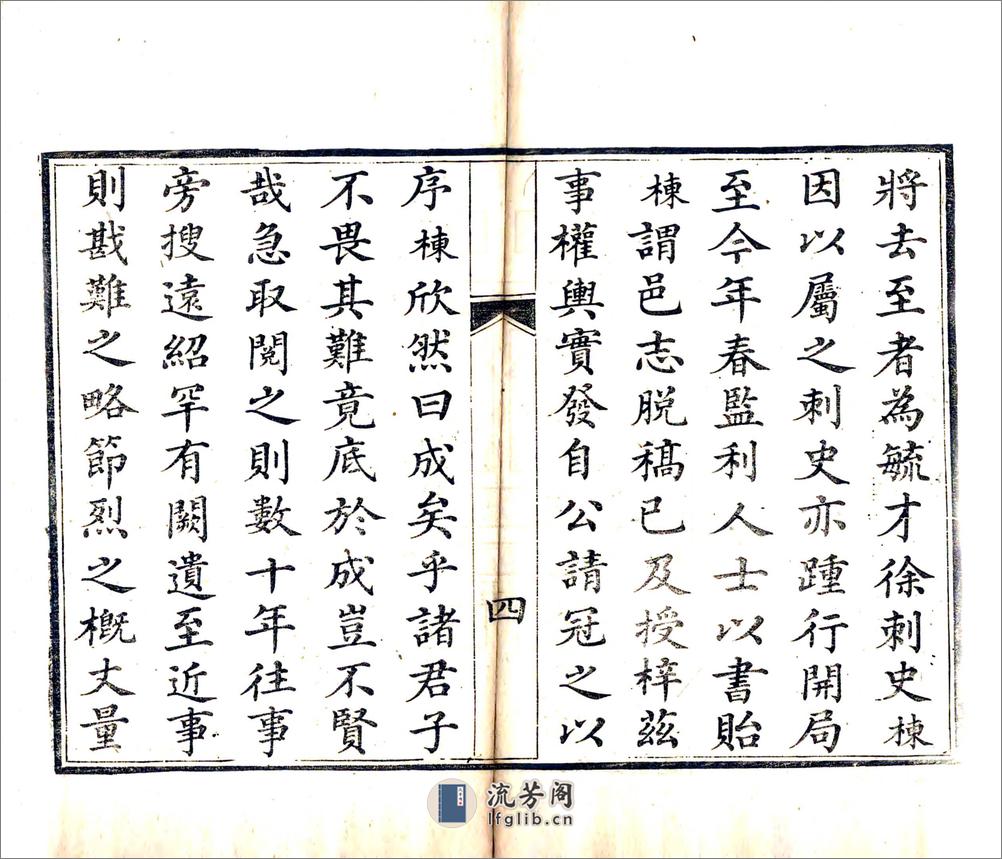 將去至者為毓才徐刺史棟
因以屬之刺史亦踵行開局
至今年春監利人士以書貽
棟謂邑志脱稿已及授梓茲
事權輿實發自公請冠之以
四
序棟欣然曰成矣乎諸君子
不畏其難竟底於成豈不賢
哉急取閱之則數十年往事
旁搜遠紹罕有闕遺至近事
則戡難之略節烈之概丈量
流芳阁
lfglib.cn